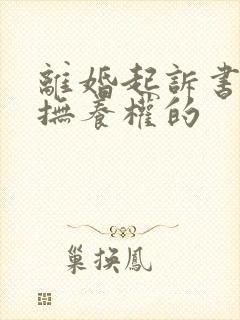 離婚起訴書
撫養權的
巢揆鳳